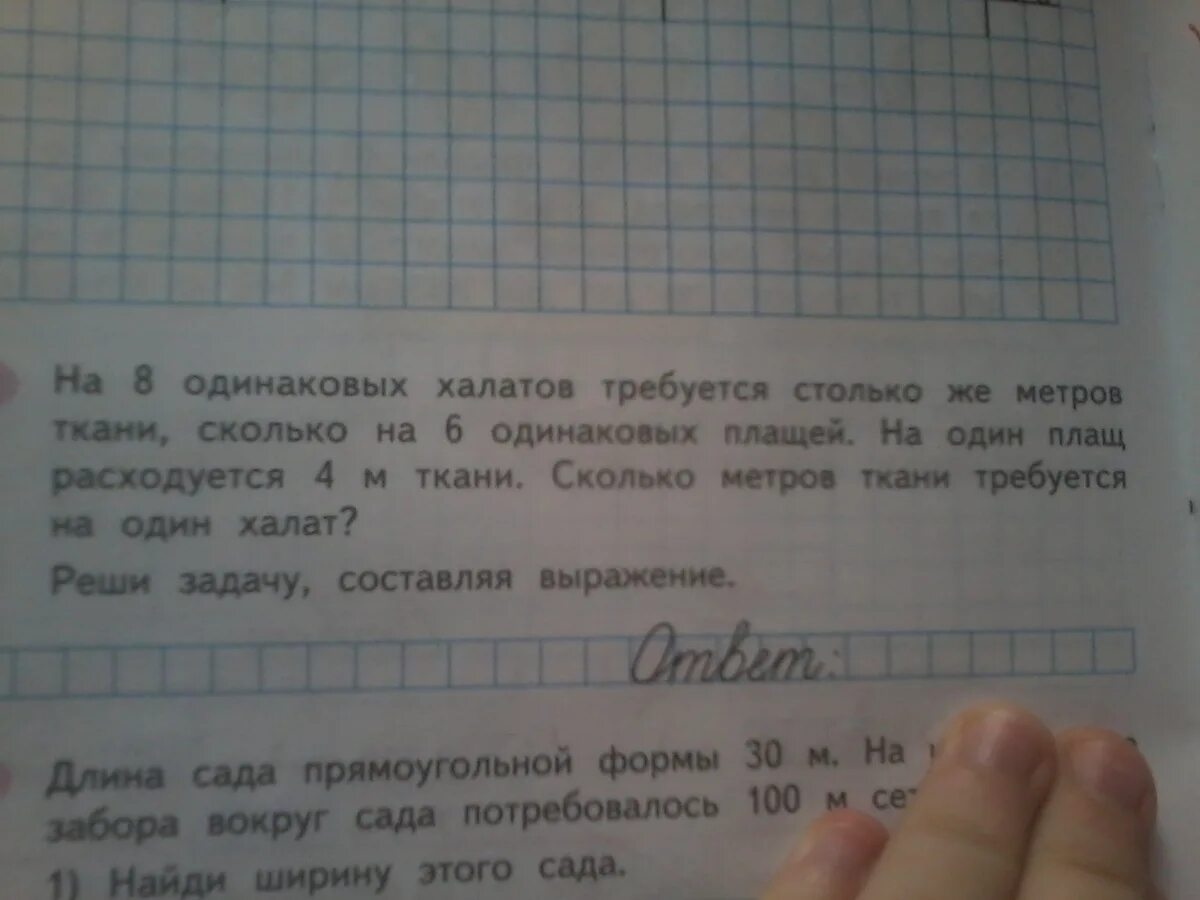 На 8 одинаковых халатов требуется столько же метров
ткани, сколько на 6 одинаковых плащей. На один плащ
расходуется 4 м ткани. Сколько метров ткани требуется
на один халат?
Реши задачу, составляя выражение.
Ответ:
Длина сада прямоугольной формы 30 м. На
забора вокруг сада потребовалось 100 м
1) Найди ширину этого сада.